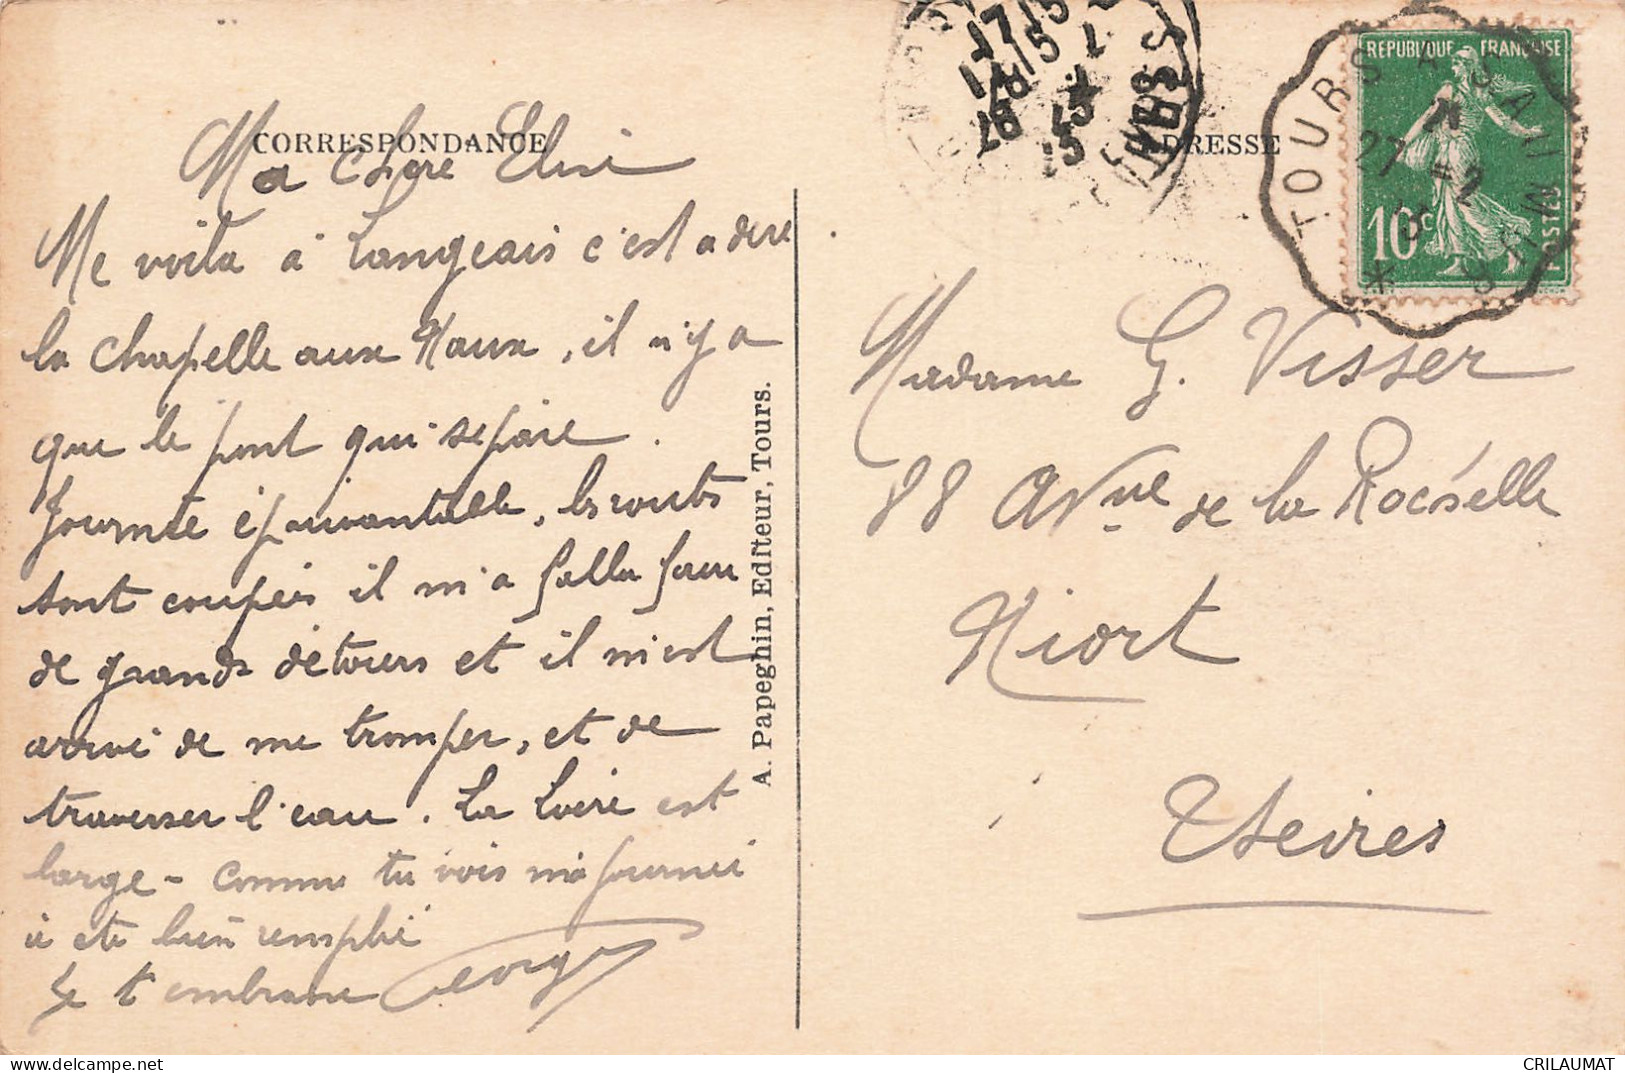 CORRESPONDANCE
Ma chere Elise
Me voila à Langeais c'est a dire
la chapelle aux Naux, il n'y a
que le pont qui separe.
Journée épouvantable, les routes
sont coupées il m'a fallu faire
de grands détours et il m'est
arrivé de me tromper, et de
traverser l'eau. La Loire est
large - comme tu vois ma journée
à été bien remplie
Je t'embrasse Georges
A. Papeghin, Editeur, Tours.
ADRESSE
REPUBLIQUE FRANÇAISE
10c
POSTES
TOURS A
27 -2
Madame G. Visser
88 Avnue de la Rochelle
Niort
2 Seivres
CRILAUMAT